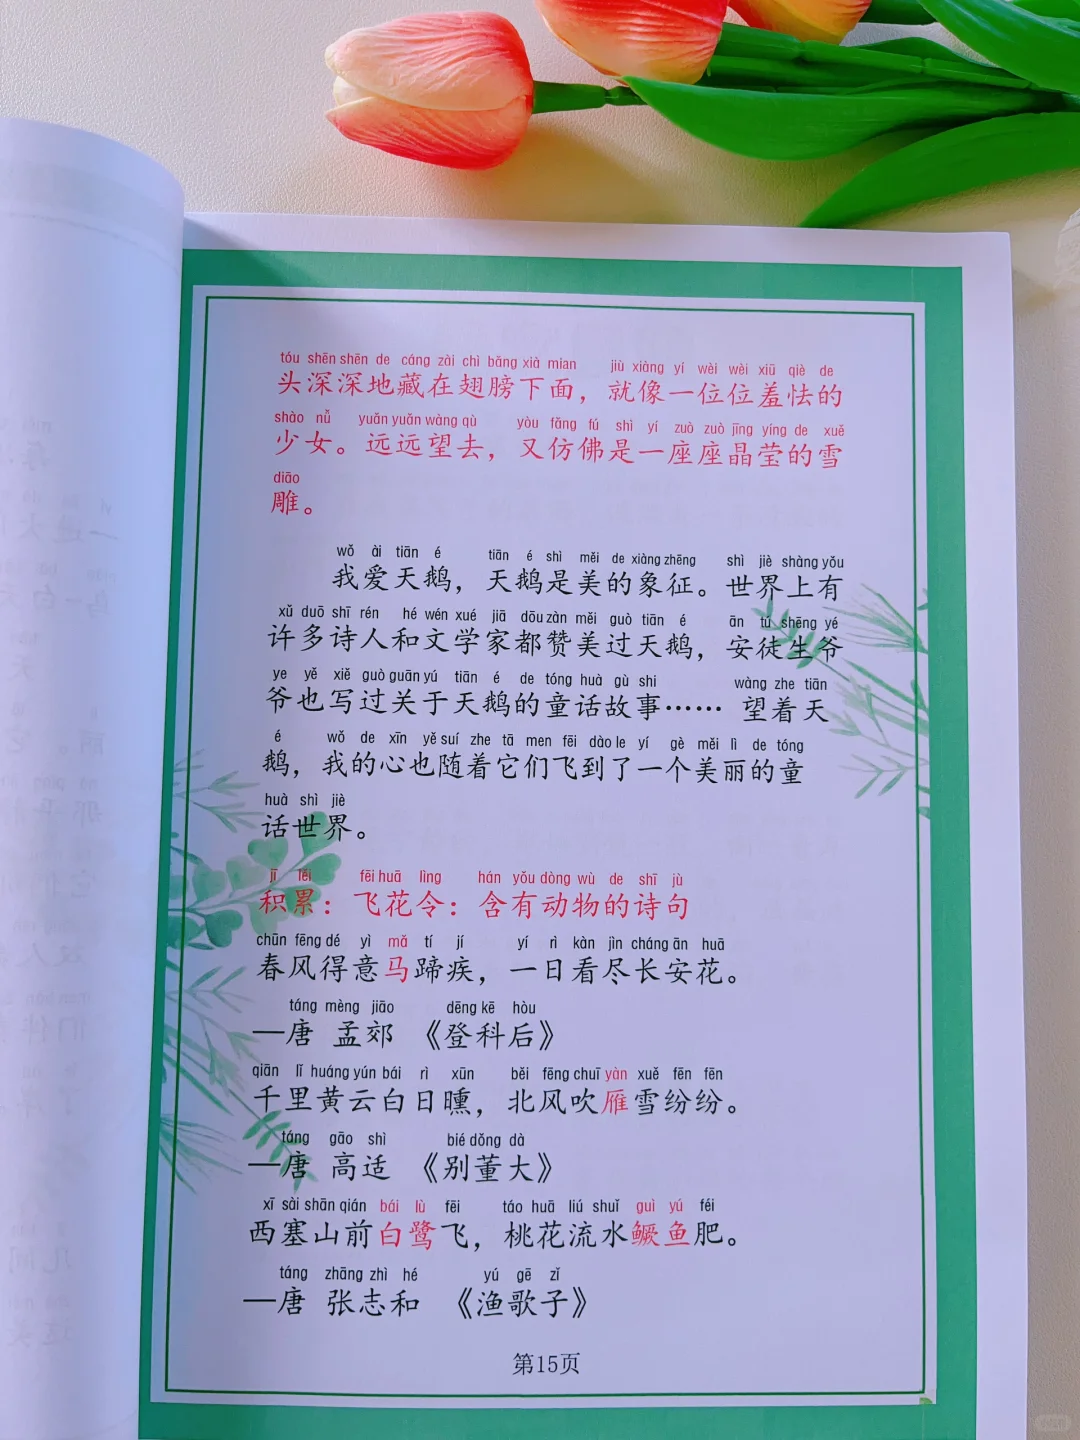 tóu shēn shēn de cáng zài chì bǎng xià mian jiù xiàng yí wèi wèi xiū qiè de
头深深地藏在翅膀下面，就像一位位羞怯的
shào nǚ yuǎn yuǎn wàng qù yòu fǎng fú shì yí zuò zuò jīng yíng de xuě
少女。远远望去，又仿佛是一座座晶莹的雪
diāo
雕。
wǒ ài tiān é tiān é shì měi de xiàng zhēng shì jiè shàng yǒu
我爱天鹅，天鹅是美的象征。世界上有
xǔ duō shī rén hé wén xué jiā dōu zàn měi guò tiān é ān tú shēng yé
许多诗人和文学家都赞美过天鹅，安徒生爷
ye yě xiě guò guān yú tiān é de tóng huà gù shi wàng zhe tiān
爷也写过关于天鹅的童话故事…… 望着天
é wǒ de xīn yě suí zhe tā men fēi dào le yí gè měi lì de tóng
鹅，我的心也随着它们飞到了一个美丽的童
huà shì jiè
话世界。
jī lěi fēi huā lìng hán yǒu dòng wù de shī jù
积累：飞花令：含有动物的诗句
chūn fēng dé yì mǎ tí jí yí rì kàn jìn cháng ān huā
春风得意马蹄疾，一日看尽长安花。
táng mèng jiāo dēng kē hòu
—唐 孟郊 《登科后》
qiān lǐ huáng yún bái rì xūn běi fēng chuī yàn xuě fēn fēn
千里黄云白日曛，北风吹雁雪纷纷。
táng gāo shì bié dǒng dà
—唐 高适 《别董大》
xī sài shān qián bái lù fēi táo huā liú shuǐ guì yú féi
西塞山前白鹭飞，桃花流水鳜鱼肥。
táng zhāng zhì hé yú gē zǐ
—唐 张志和 《渔歌子》
第15页